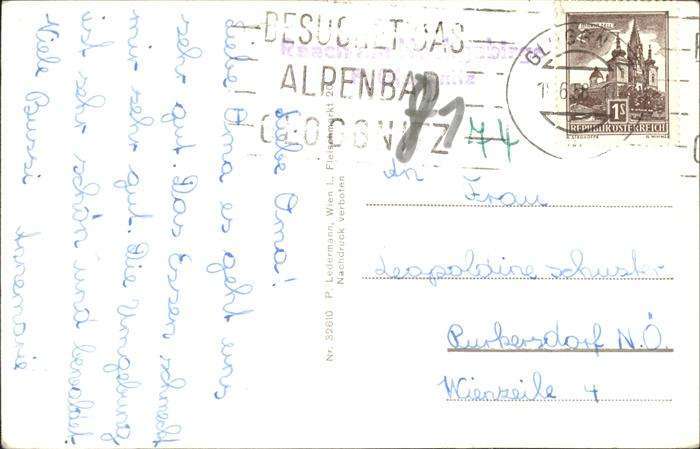 BESUCHET DAS
ALPENBAD
GLOGGNITZ
GLOGGNITZ
REPUBLIK ÖSTERREICH
1S
74
An Frau
Leopoldine Schuster
Purkersdorf N.Ö.
Wienzeile 4
Nr. 32610 P. Ledermann, Wien I., Fleischmarkt 20
Nachdruck verboten
Liebe Oma!
Liebe Oma es geht uns
sehr gut. Das Essen schmeckt
mir sehr gut. Die Umgebung
ist sehr schön und
Viele Bussi
Annemarie